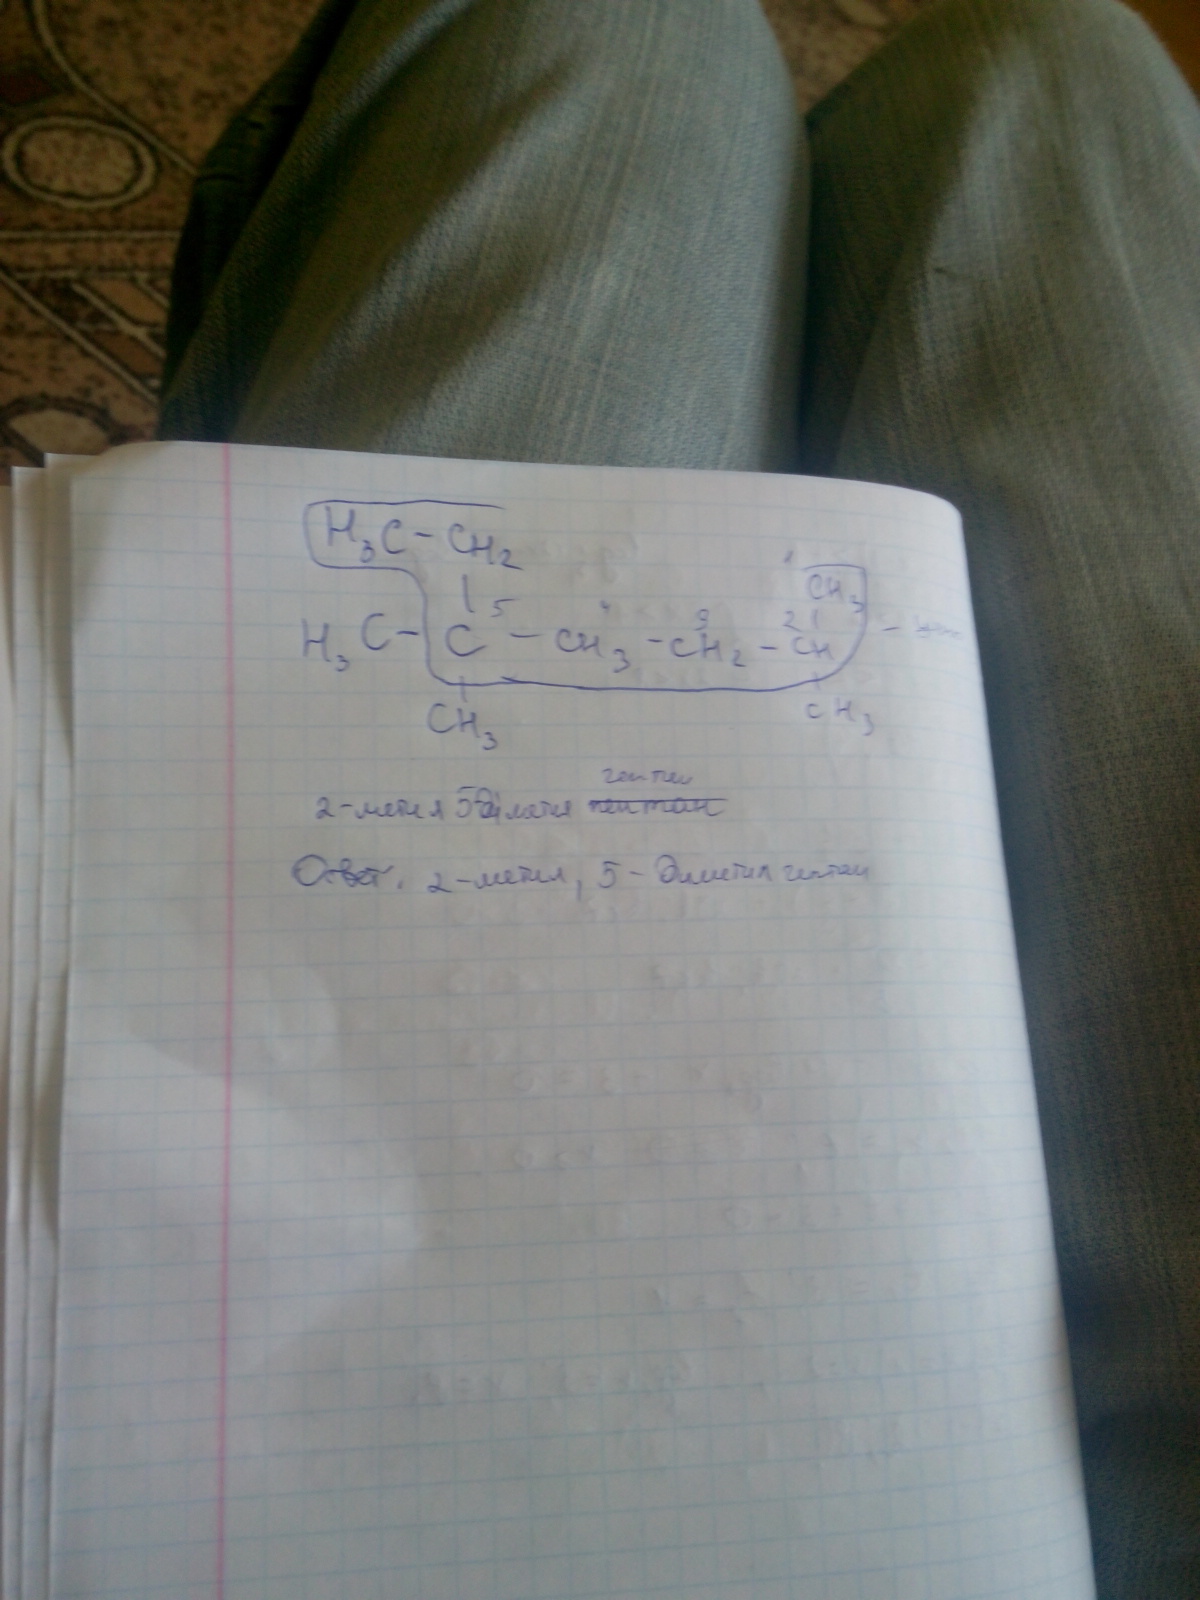 H₃C-CH₂
1
CH₃
5 4 3 2
H₃C-C-CH₃-CH₂-CH
CH₃ CH₃
гептан
2-метил 5-диметил пентан
Ответ. 2-метил, 5-диметил гептан